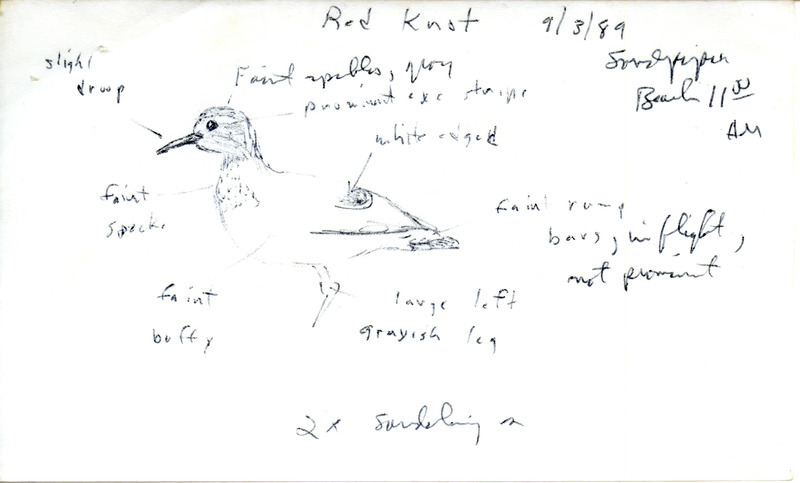 Red Knot 9/3/89
Sandpiper
Beach 11 00
AM
slight
droop
Faint speckles, gray
prominent eye stripe
white edged
faint
specks
faint rump
bars, in flight,
not prominent
faint
buffy
large left
grayish leg
2x Sanderling